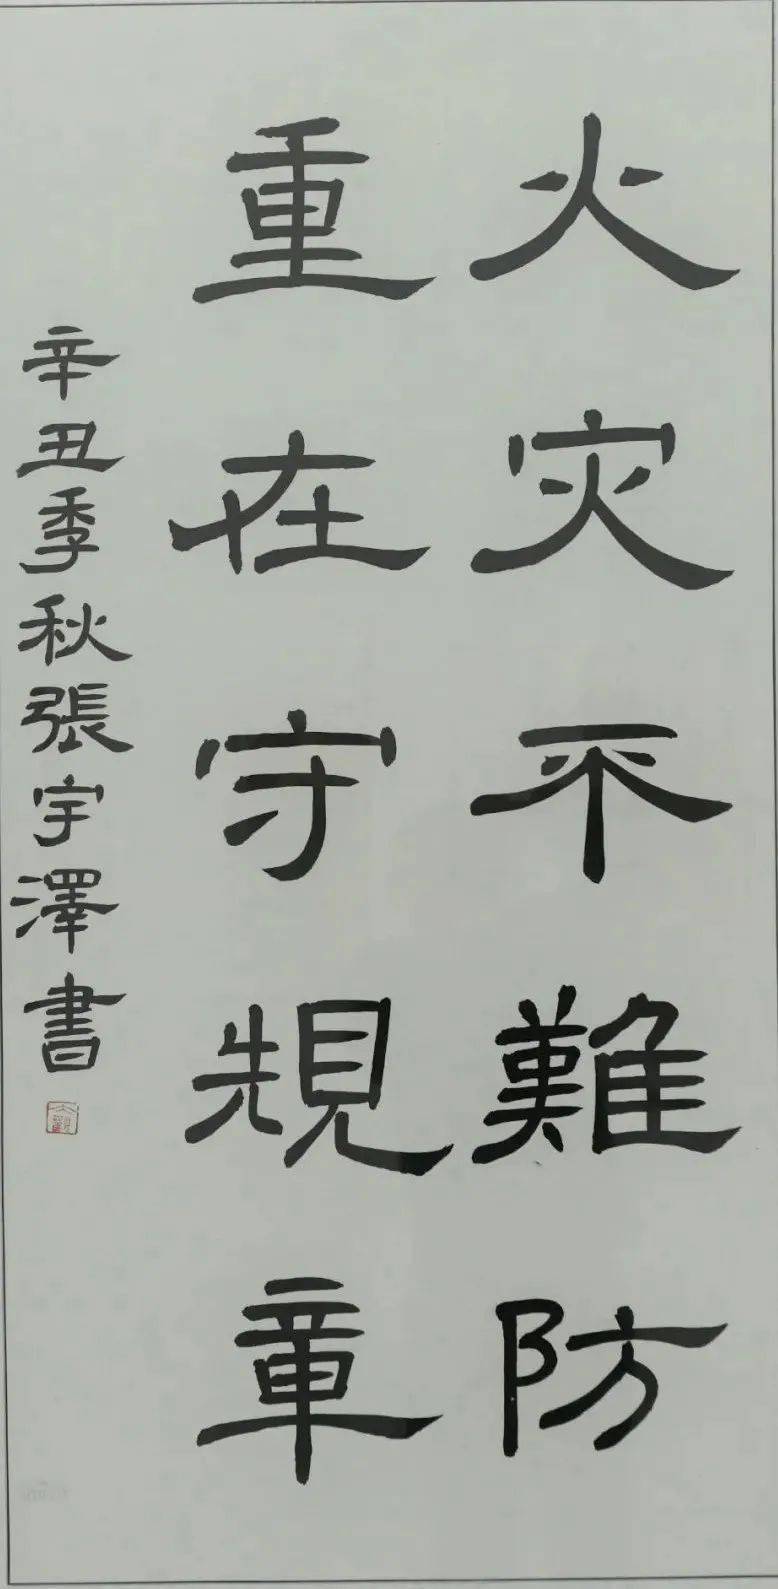 火灾不難防
重在守規章
辛丑季秋張宇澤書